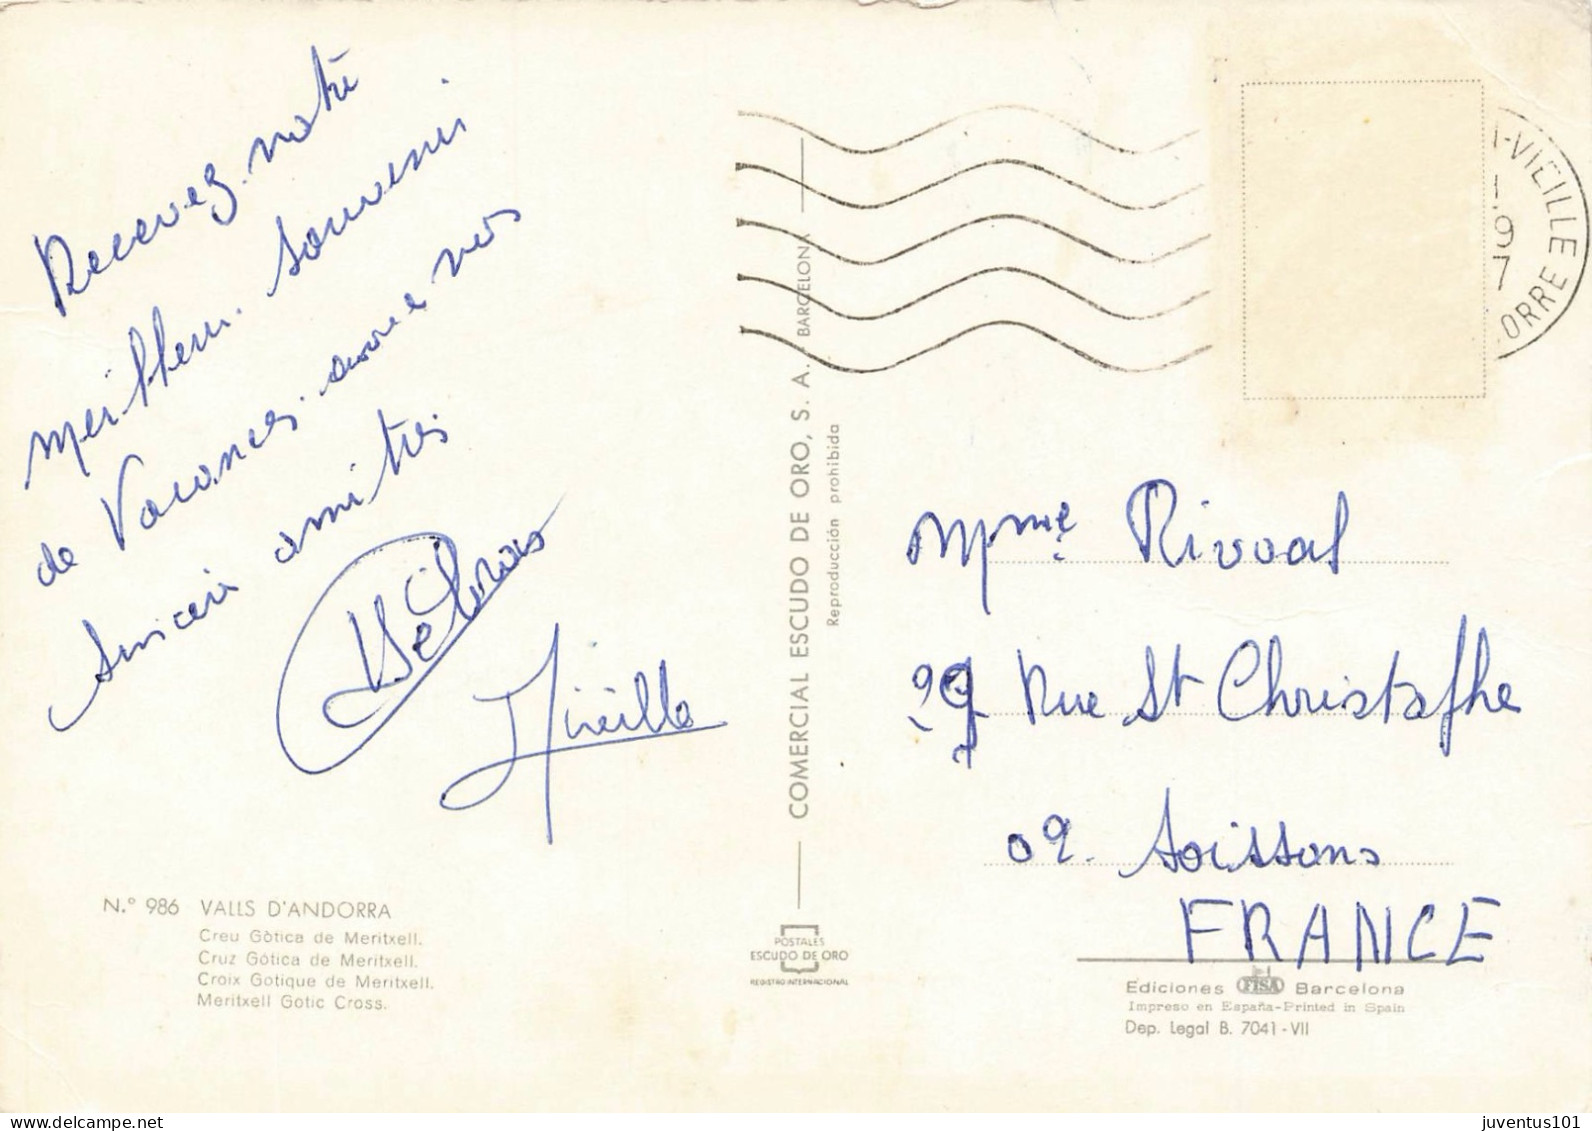 Recevez notre
meilleur souvenir
de Vacances. avec nos
sincère amitiés
Mireille
N.º 986 VALLS D'ANDORRA
Creu Gòtica de Meritxell.
Cruz Gótica de Meritxell.
Croix Gotique de Meritxell.
Meritxell Gotic Cross.
COMERCIAL ESCUDO DE ORO, S. A. BARCELONA
Reproducción prohibida
POSTALES
ESCUDO DE ORO
REGISTRO INTERNACIONAL
-VIEILLE
9
7
ORRE
Mme Rivoal
29 Rue St Christophe
02. Soissons
FRANCE
Ediciones FISA Barcelona
Impreso en España-Printed in Spain
Dep. Legal B. 7041-VII
juventus101